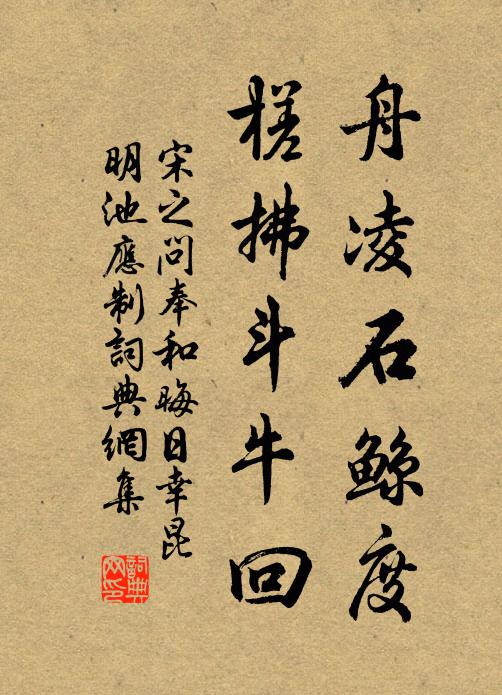 舟凌石鲸度
槎拂斗牛回
宋之问奉和晦日幸昆
明池應制詞典網集
詞典網印